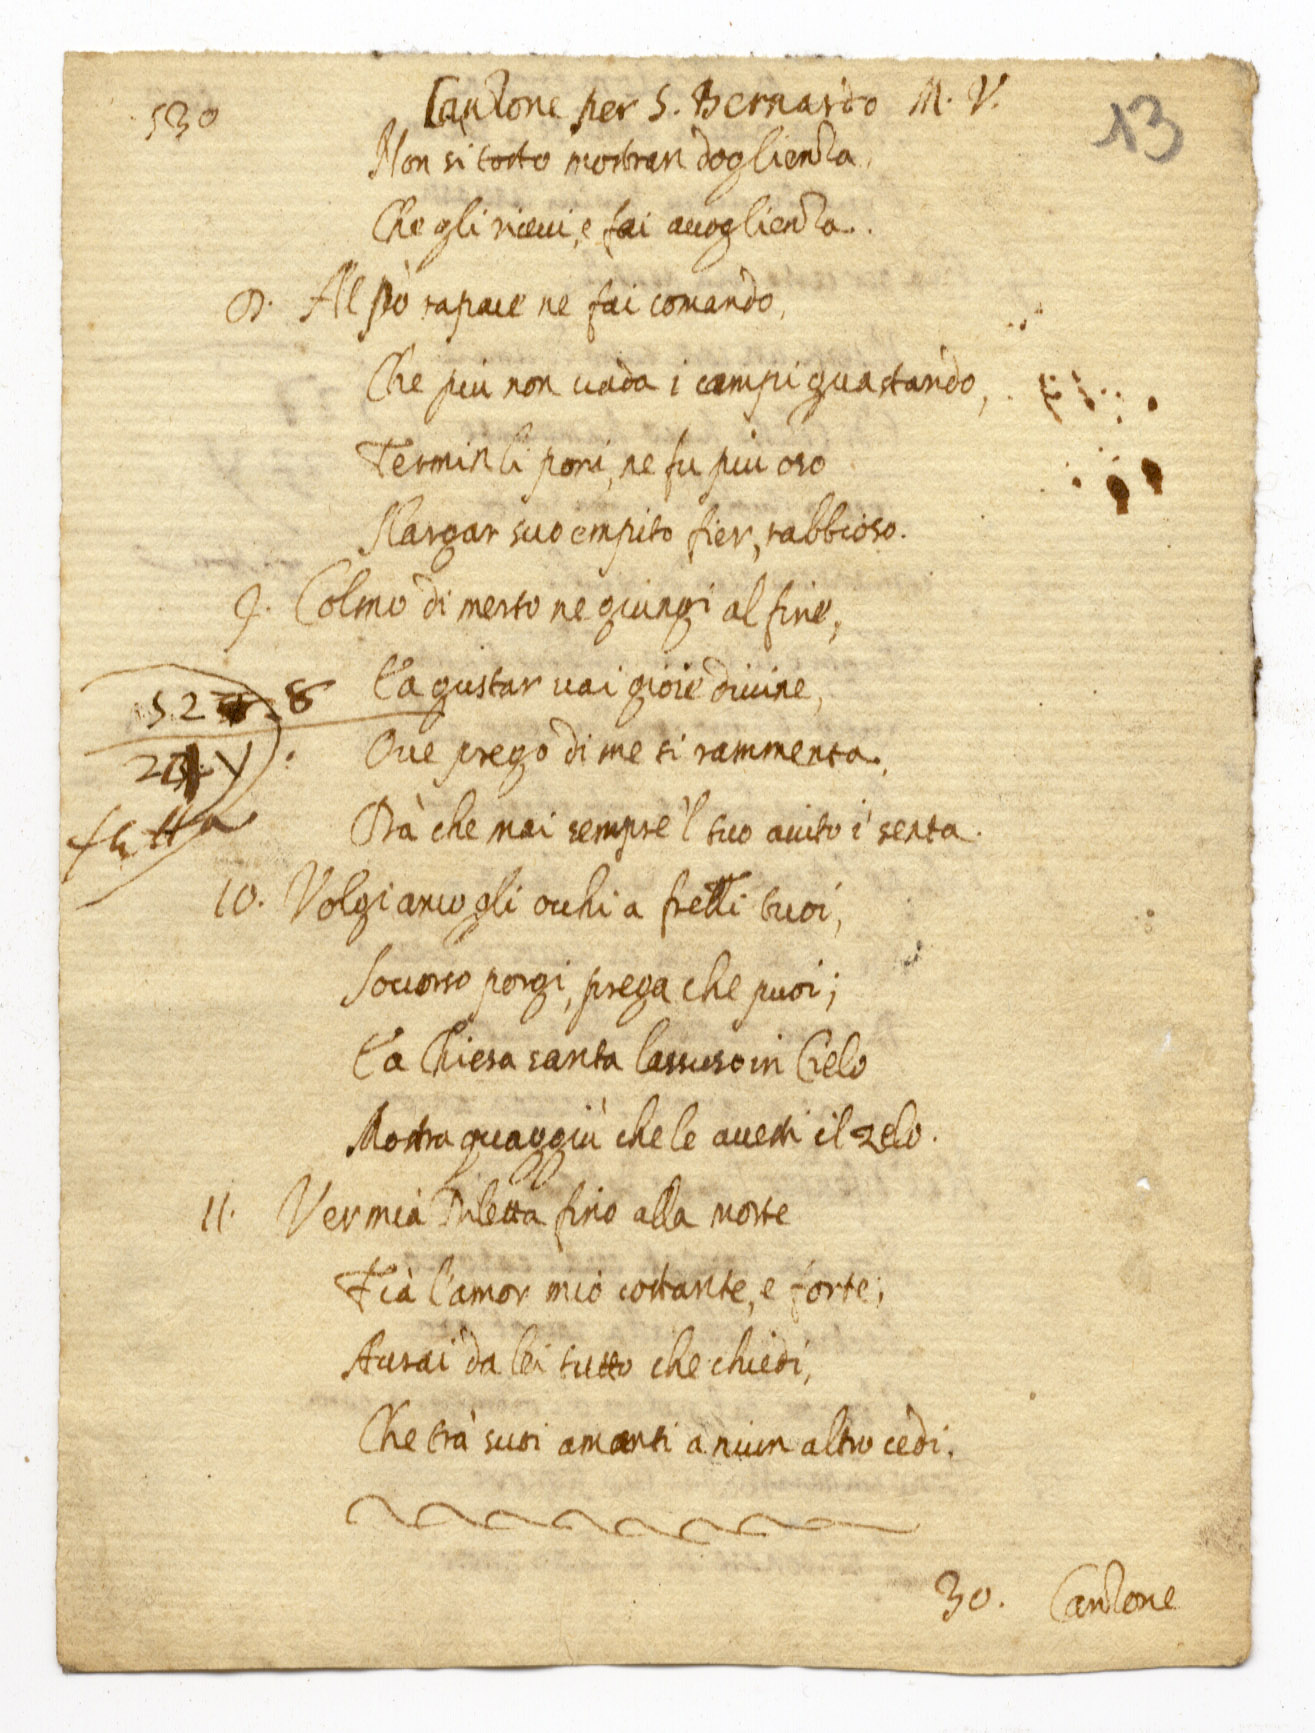 530 Canzone per S. Bernardo M. V. 13
Non si tosto mostran doglienza,
Che gli ricevi, e fai accoglienza.
8. Al Pò rapace ne fai comando,
Che più non vada i campi guastando,
Termin li poni, ne fu più oso
Slargar suo empito fier, rabbioso.
9. Colmo di merto ne giungi al fine,
Ed a gustar vai gioie divine,
528
Ove prego di me ti rammenta,
Dà che mai sempre 'l tuo aiuto i' senta.
10. Volgi anco gli occhi a fretti tuoi,
Socorso porgi, prega che puoi;
E a Chiesa santa lassuso in Cielo
Mostra quaggiù che le avesti il zelo.
11. Ver mia Diletta fino alla morte
Fià l'amor mio costante, e forte;
Aurai da lei tutto che chiedi,
Che trà suoi amanti a niun altro cedi.
30. Canzone